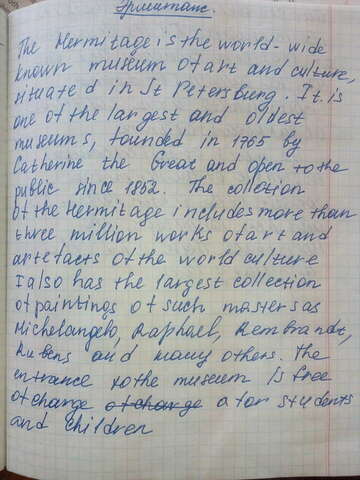 Эрмитаж.
The Hermitage is the world-wide
known museum of art and culture,
situated in St Petersburg. It is
one of the largest and oldest
museums, founded in 1765 by
Catherine the Great and open to the
public since 1852. The colletion
of the Hermitage includes more than
three million works of art and
artefacts of the world culture
I also has the largest collection
of paintings of such masters as
Michelangelo, Raphael, Rembrandt,
Rubens and many others. The
entrance to the museum is free
of charge of charge a for students
and children